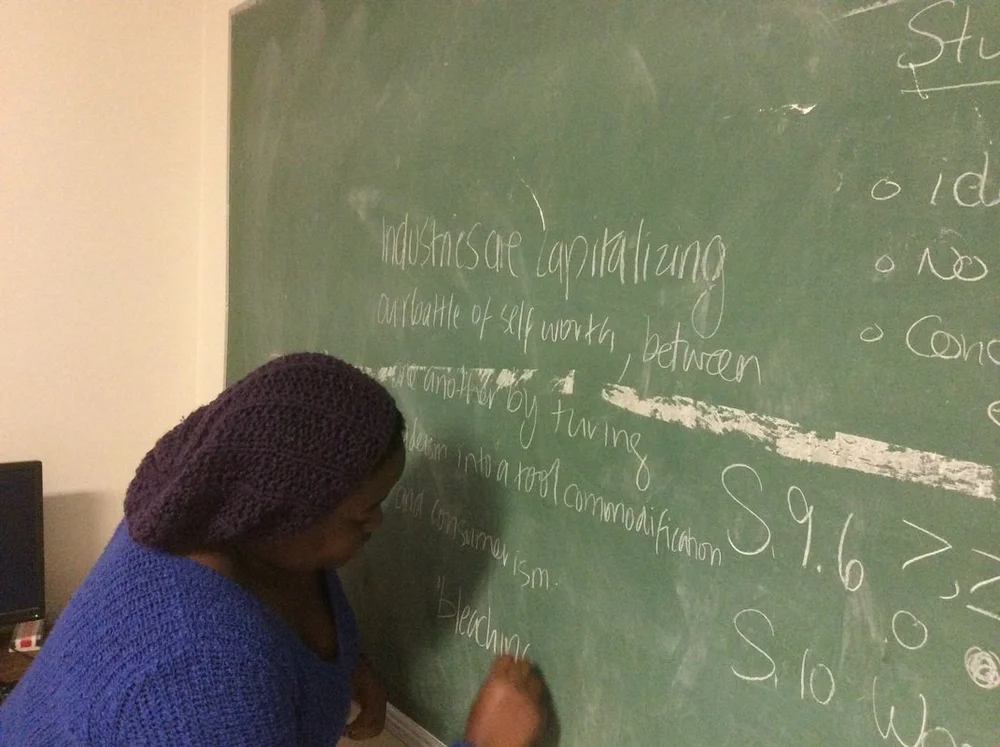 Industries are Capitalizing
our battle of self worth, between
one another by turing
into a tool commodification
and consumerism.
"bleaching
Stu
o id
o No
o Conc
S. 9.6 >, ≥
S. 10